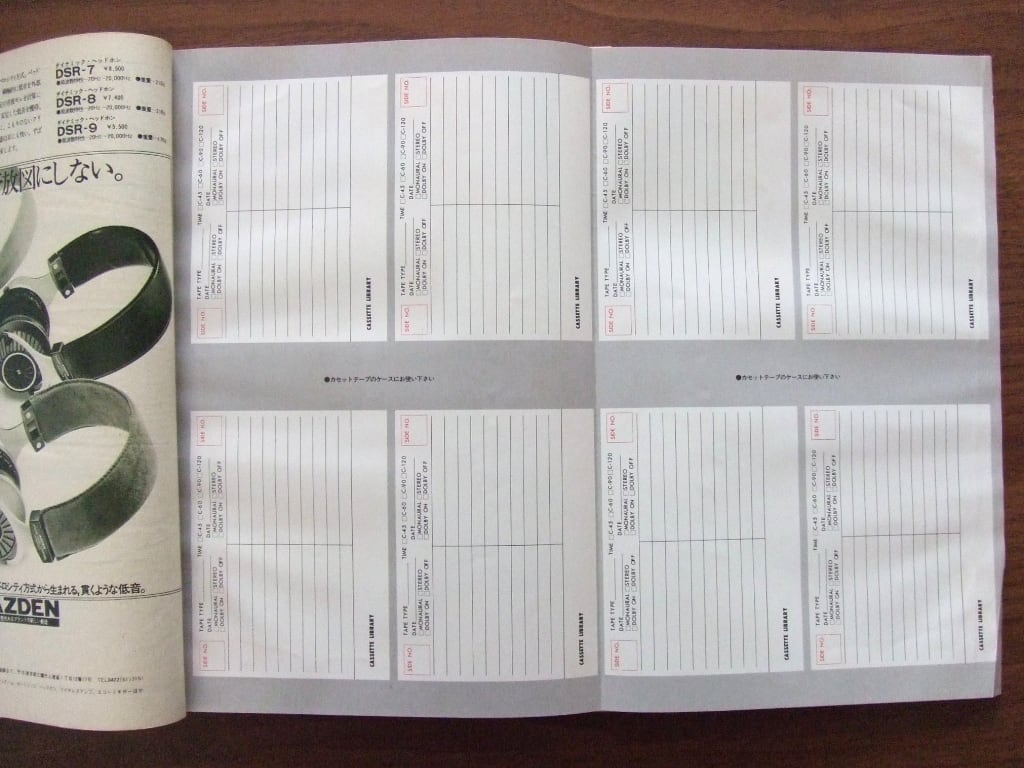 ダイナミック・ヘッドホン
DSR-7 ¥8,500
●周波数特性…20Hz～20,000Hz ●重量…
ダイナミック・ヘッドホン
DSR-8 ¥7,400
●周波数特性…20Hz～20,000Hz ●重量…
ダイナミック・ヘッドホン
DSR-9 ¥5,500
●周波数特性…20Hz～20,000Hz ●重量…
放図にしない。
ロシティ方式から生まれる、貫くような低音。
AZDEN
SIDE NO.
TAPE TYPE TIME □C-45 □C-60 □C-90 □C-120
DATE DATE
□MONAURAL □STEREO □MONAURAL □STEREO
□DOLBY ON □DOLBY OFF □DOLBY ON □DOLBY OFF
SIDE NO.
CASSETTE LIBRARY
SIDE NO.
TAPE TYPE TIME □C-45 □C-60 □C-90 □C-120
DATE DATE
□MONAURAL □STEREO □MONAURAL □STEREO
□DOLBY ON □DOLBY OFF □DOLBY ON □DOLBY OFF
SIDE NO.
CASSETTE LIBRARY
SIDE NO.
TAPE TYPE TIME □C-45 □C-60 □C-90 □C-120
DATE DATE
□MONAURAL □STEREO □MONAURAL □STEREO
□DOLBY ON □DOLBY OFF □DOLBY ON □DOLBY OFF
SIDE NO.
CASSETTE LIBRARY
SIDE NO.
TAPE TYPE TIME □C-45 □C-60 □C-90 □C-120
DATE DATE
□MONAURAL □STEREO □MONAURAL □STEREO
□DOLBY ON □DOLBY OFF □DOLBY ON □DOLBY OFF
SIDE NO.
CASSETTE LIBRARY
●カセットテープのケースにお使い下さい
●カセットテープのケースにお使い下さい
SIDE NO.
TAPE TYPE TIME □C-45 □C-60 □C-90 □C-120
DATE DATE
□MONAURAL □STEREO □MONAURAL □STEREO
□DOLBY ON □DOLBY OFF □DOLBY ON □DOLBY OFF
SIDE NO.
CASSETTE LIBRARY
SIDE NO.
TAPE TYPE TIME □C-45 □C-60 □C-90 □C-120
DATE DATE
□MONAURAL □STEREO □MONAURAL □STEREO
□DOLBY ON □DOLBY OFF □DOLBY ON □DOLBY OFF
SIDE NO.
CASSETTE LIBRARY
SIDE NO.
TAPE TYPE TIME □C-45 □C-60 □C-90 □C-120
DATE DATE
□MONAURAL □STEREO □MONAURAL □STEREO
□DOLBY ON □DOLBY OFF □DOLBY ON □DOLBY OFF
SIDE NO.
CASSETTE LIBRARY
SIDE NO.
TAPE TYPE TIME □C-45 □C-60 □C-90 □C-120
DATE DATE
□MONAURAL □STEREO □MONAURAL □STEREO
□DOLBY ON □DOLBY OFF □DOLBY ON □DOLBY OFF
SIDE NO.
CASSETTE LIBRARY